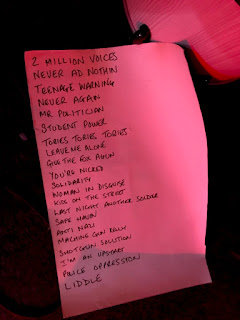 2 MILLION VOICES
NEVER AD NOTHIN
TEENAGE WARNING
NEVER AGAIN
MR POLITICIAN
STUDENT POWER
TORIES TORIES TORIES
LEAVE ME ALONE
GIVE THE FOX A GUN
YOU'RE NICKED
SOLIDARITY
WOMAN IN DISGUISE
KIDS ON THE STREET
LAST NIGHT ANOTHER SOLDIER
SAFE HAVEN
ANTI NAZI
MACHINE GUN KELLY
SHOTGUN SOLUTION
I'M AN UPSTART
POLICE OPPRESSION
LIDDLE